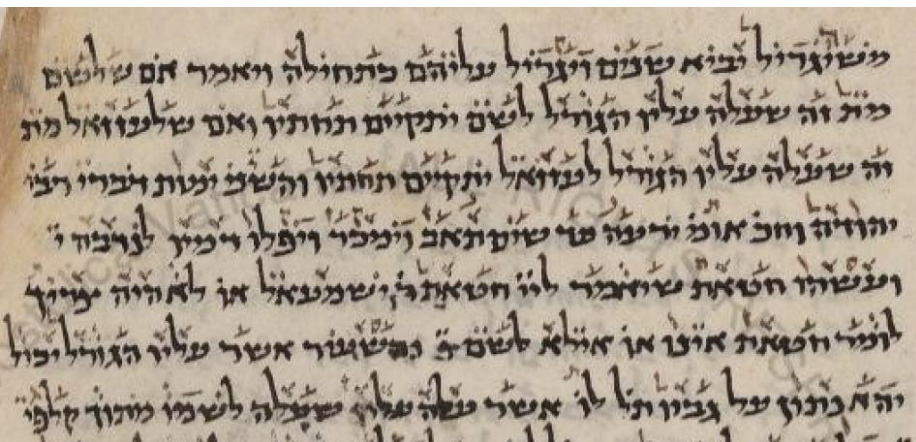 משיגריל יביא שנים ויגריל עליהם כתחילה ויאמר אם שלשם
מת זה שעלה עליו הגורל לשם יתקיים תחתיו ואם שלעזזאל מת
זה שעלה עליו הגורל לעזזאל יתקיים תחתיו והשני ימות דברי רבי
יהודה וחכ אומ ירעה עד שיסתאב וימכר ויפלו דמיו לנדבה
ועשהו חטאת שיאמר ליי חטאת ר ישמעאל או לא היה צריך
לומר חטאת אינו או אילא לשם והשעיר אשר עליו הגורל יכול
יהא נתון על גביו תל לו אשר עלה עליו שעלה לשמו מתוך קלפי